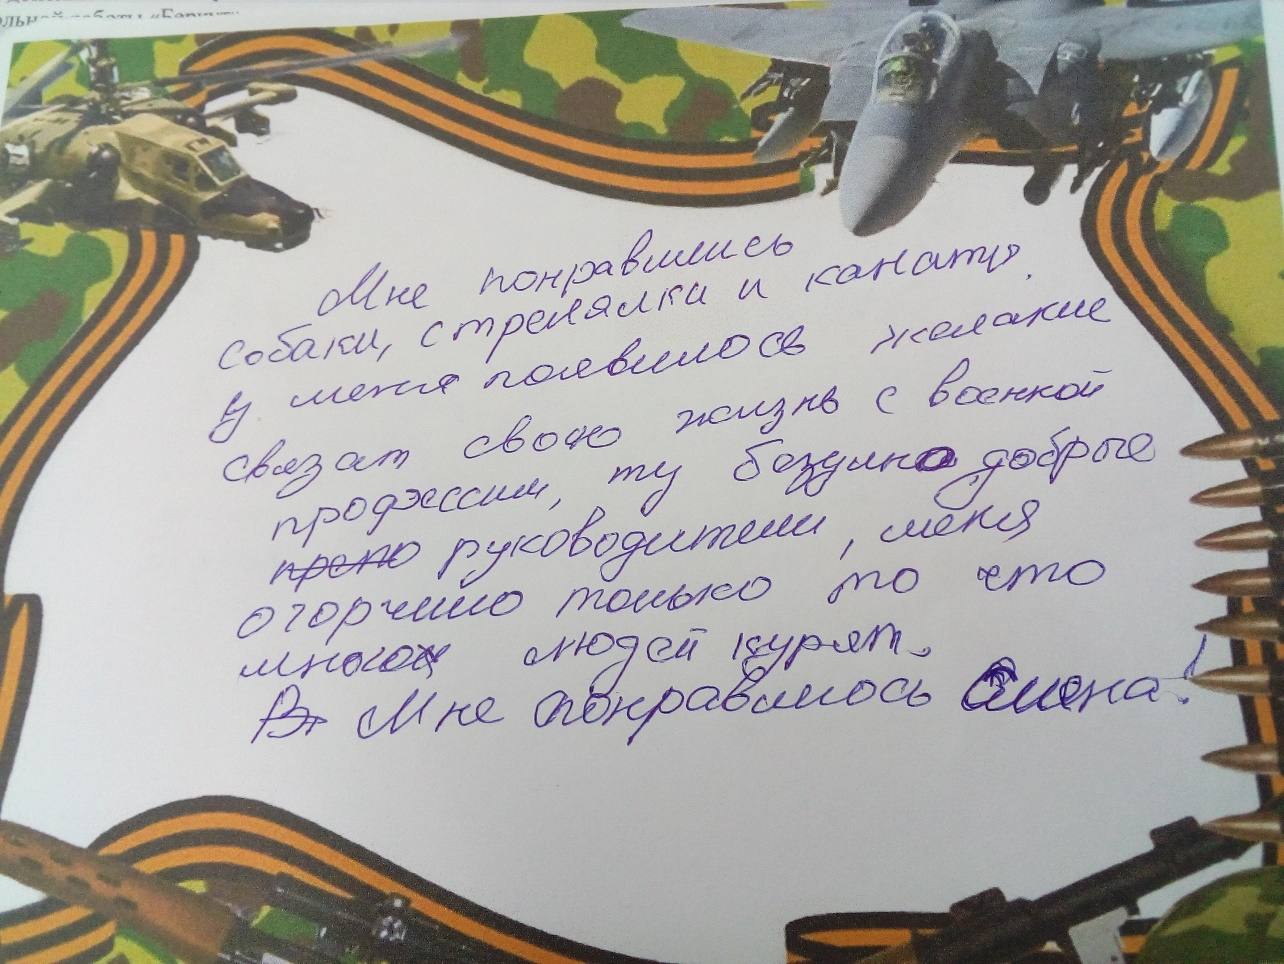 ольной работы «Беркут»
Мне понравились
собаки, стрелялки и канаты.
У меня появилось желание
связат свою жизнь с военной
профессии, ту безумно добрые
препо руководители, меня
огорчило только то что
много людей курят.
Вт Мне понравилось Смена!